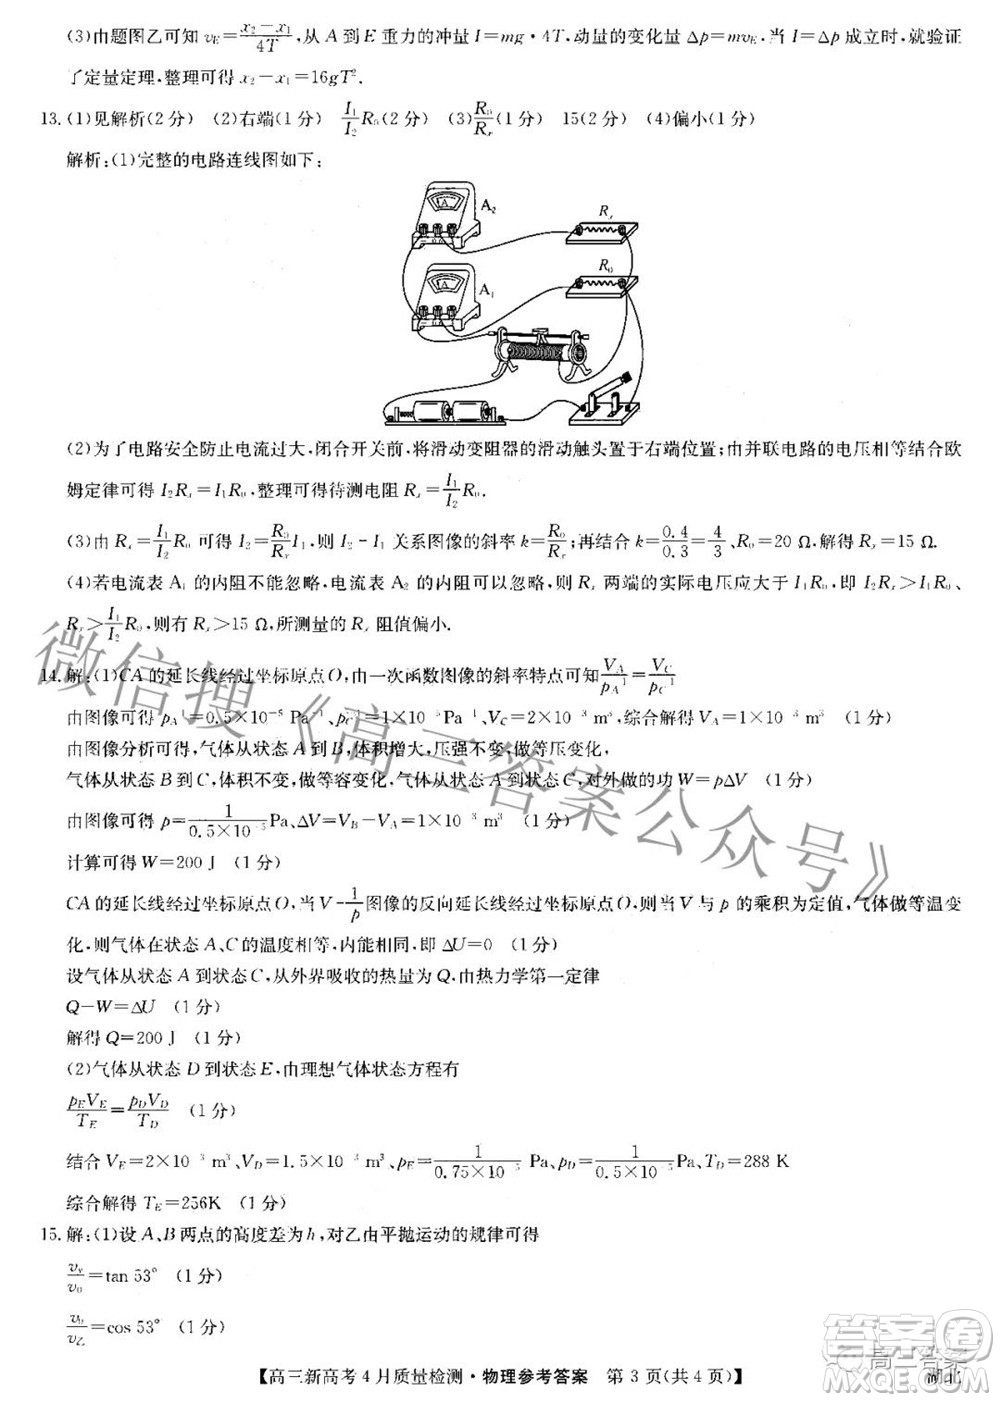 (3)由题图乙可知 v_E=(x₂-x₁)/4T,从 A 到 E 重力的冲量 I=mg·4T,动量的变化量 Δp=mv_E.当 I=Δp 成立时,就验证
了定量定理,整理可得 x₂-x₁=16gT².
13.(1)见解析(2分) (2)右端(1分) I₁/I₂ R₀(2分) (3)R₀/Rₓ(1分) 15(2分) (4)偏小(1分)
解析:(1)完整的电路连线图如下:
A A₂ Rₓ
A A₁ R₀
(2)为了电路安全防止电流过大,闭合开关前,将滑动变阻器的滑动触头置于右端位置;由并联电路的电压相等结合欧
姆定律可得 I₂Rₓ=I₁R₀,整理可得待测电阻 Rₓ=I₁/I₂ R₀.
(3)由 Rₓ=I₁/I₂ R₀ 可得 I₂=R₀/Rₓ I₁,则 I₂-I₁ 关系图像的斜率 k=R₀/Rₓ;再结合 k=0.4/0.3=4/3、R₀=20 Ω,解得 Rₓ=15 Ω.
(4)若电流表 A₁ 的内阻不能忽略,电流表 A₂ 的内阻可以忽略,则 Rₓ 两端的实际电压应大于 I₁R₀,即 I₂Rₓ>I₁R₀、
Rₓ>I₁/I₂ R₀,则有 Rₓ>15 Ω,所测量的 Rₓ 阻值偏小.
14.解:(1)CA 的延长线经过坐标原点 O,由一次函数图像的斜率特点可知 V_A/p_A⁻¹=V_C/p_C⁻¹
由图像可得 p_A⁻¹=0.5×10⁻⁵ Pa⁻¹、p_C⁻¹=1×10⁻⁵Pa⁻¹、V_C=2×10⁻³ m³,综合解得 V_A=1×10⁻³ m³ (1分)
由图像分析可得,气体从状态 A 到 B,体积增大,压强不变,做等压变化,
气体从状态 B 到 C,体积不变,做等容变化,气体从状态 A 到状态 C,对外做的功 W=pΔV (1分)
由图像可得 p=1/(0.5×10⁻⁵)Pa、ΔV=V_B-V_A=1×10⁻³ m³ (1分)
计算可得 W=200 J (1分)
CA 的延长线经过坐标原点 O,当 V-1/p 图像的反向延长线经过坐标原点 O,则 V 与 p 的乘积为定值,气体做等温变
化,则气体在状态 A、C 的温度相等,内能相同,即 ΔU=0 (1分)
设气体从状态 A 到状态 C,从外界吸收的热量为 Q,由热力学第一定律
Q-W=ΔU (1分)
解得 Q=200 J (1分)
(2)气体从状态 D 到状态 E,由理想气体状态方程有
p_E V_E/T_E=p_D V_D/T_D (1分)
结合 V_E=2×10⁻³ m³、V_D=1.5×10⁻³ m³、p_E=1/(0.75×10⁻⁵) Pa、p_D=1/(0.5×10⁻⁵) Pa、T_D=288 K
综合解得 T_E=256K (1分)
15.解:(1)设 A、B 两点的高度差为 h,对乙由平抛运动的规律可得
v_y/v₀=tan 53° (1分)
v₀/v_乙=cos 53° (1分)
【高三新高考4月质量检测·物理参考答案 第3页(共4页)】
湖北
微信搜《高三答案公众号》
答案圈
MXQE.COM